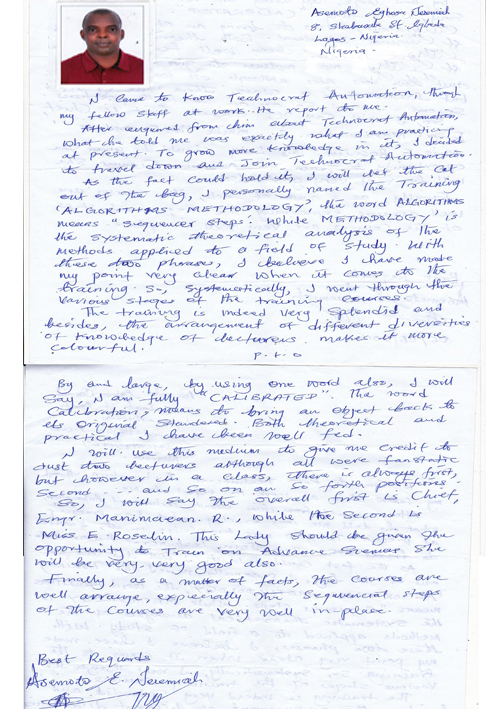 Asemota Eghosa Jeremiah
8, St Egbeda
Lagos - Nigeria
Nigeria.
I came to know Technocrat Automation, through
my fellow staff at work. He report to me.
After enquires from him about Technocrat Automation,
what he told me was exactly what I am practicing
at present. To grow more knowledge in it, I decided
to travel down and Join Technocrat Automation.
As the fact could hold it, I will let the Cat
out of the bag, I personally named the Training
'ALGORITHMS METHODOLOGY', the word ALGORITHMS
means "Sequencer steps". While METHODOLOGY' is
the systematic theoretical analysis of the
methods applied to a field of study. With
these two phrases, I believe I have made
my point very clear when it comes to the
training. So, systematically, I went through the
various stages of the training courses.
The training is indeed very splendid and
besides, the arrangement of different diversities
of knowledge of lecturers makes it more
colourful.
P.T.O
By and large, by using one word also, I will
say, I am fully "CALIBRATED". The word
Calibration, means to bring an object back to
its original standard. Both theoretical and
practical I have been well fed.
I will use this medium to give me credit to
just two lecturers although all were fanstatic
but however in a class, there is always first,
second .... and so on an so forth positions.
So, I will say the overall first is Chief,
Engr. Manimaran. R., while the second is
Miss E. Roselin. This Lady should be given the
opportunity to Train on Advance she
will be very, very good also.
Finally, as a matter of facts, the courses are
well arrange, expecially the Sequencial steps
of the Courses are very well in-place.
Best Regards
Asemota E. Jeremiah